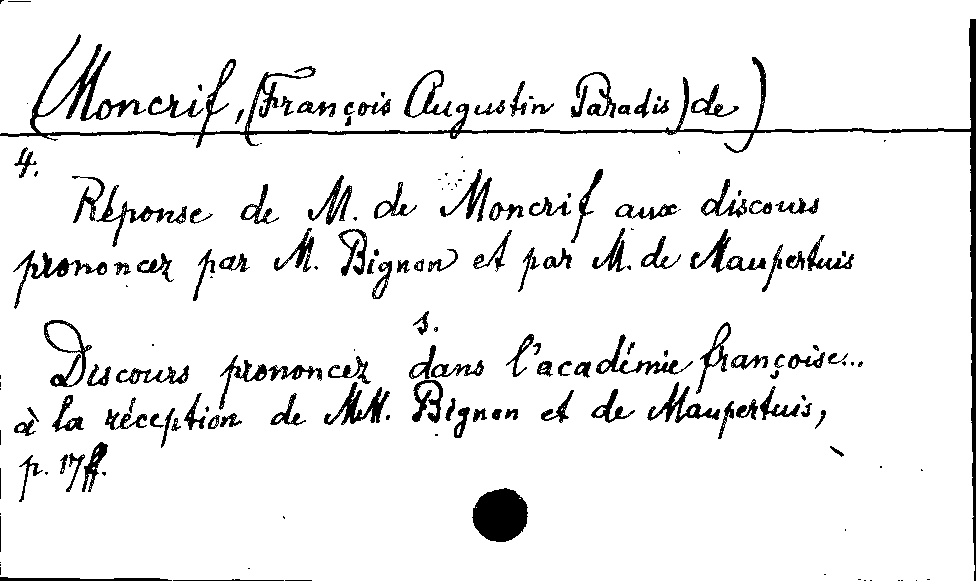 (Moncrif, (François Augustin Paradis) de)
4.
Réponse de M. de Moncrif aux discours
prononcez par M. Bignon et par M. de Maupertuis
s.
Discours prononcez dans l'académie françoise...
à la réception de MM. Bignon et de Maupertuis,
p. 17 ff.